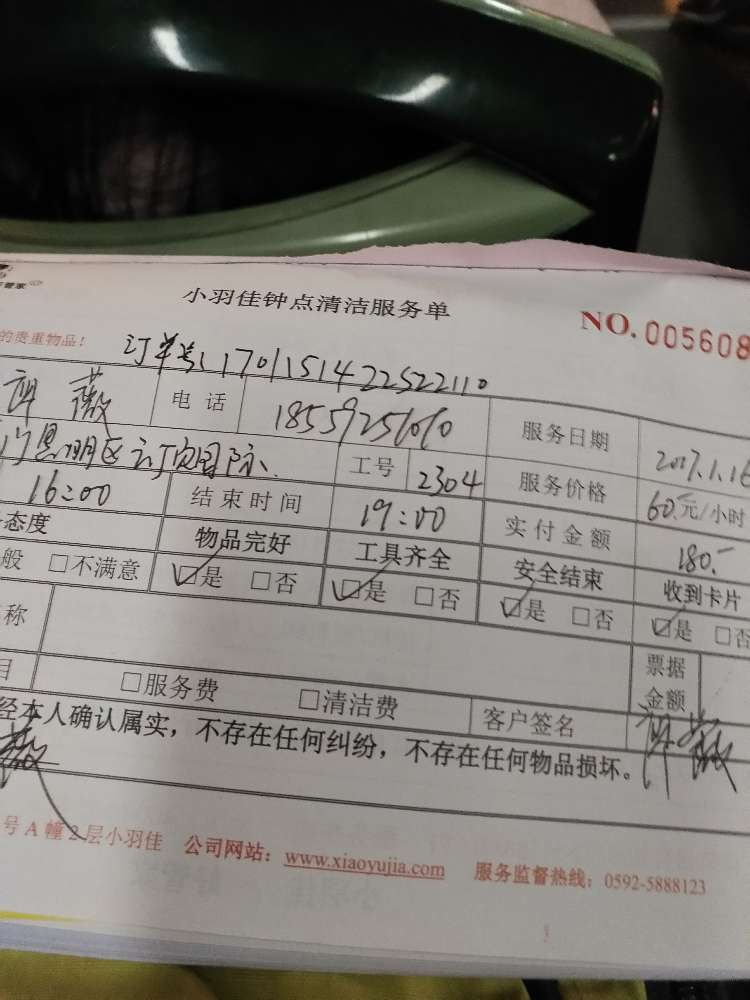 管家
小羽佳钟点清洁服务单
NO. 005608
的贵重物品！
订单号：1701151422522110
薇 电话 18559256060 服务日期 2017.1.16
思明区 国际 工号 2304 服务价格 60.元/小时
16:00 结束时间 19:00 实付金额 180.-
态度 物品完好 工具齐全 安全结束 收到卡片
般 □不满意 ☑是 □否 ☑是 □否 ☑是 □否 ☑是 □否
称 票据金额
目 □服务费 □清洁费 客户签名 薇
经本人确认属实，不存在任何纠纷，不存在任何物品损坏。
薇
号A幢2层小羽佳 公司网站：www.xiaoyujia.com 服务监督热线：0592-5888123